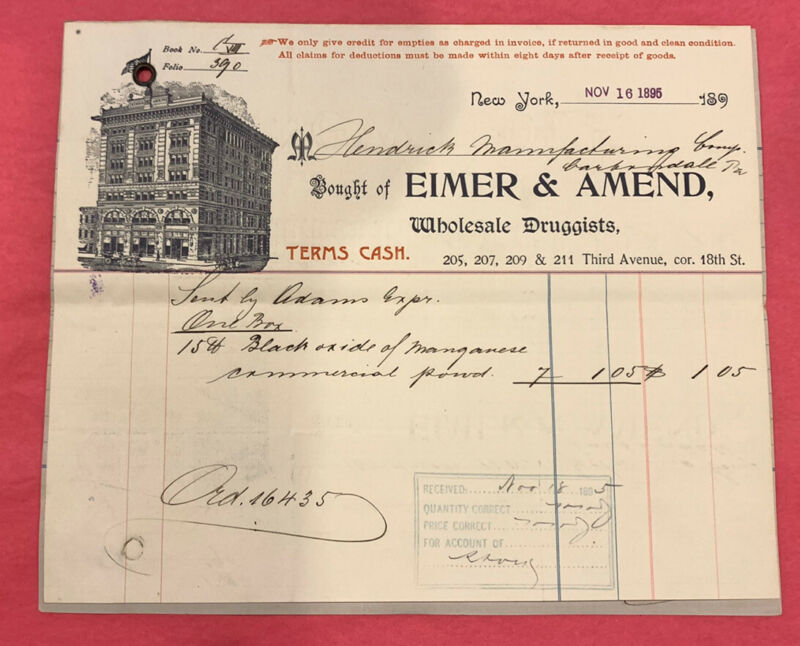 Book No. VIII
Folio 390
We only give credit for empties as charged in invoice, if returned in good and clean condition.
All claims for deductions must be made within eight days after receipt of goods.
New York, NOV 16 1895 189
M Hendrick Manufacturing Comp.
Carbondale Pa
Bought of EIMER & AMEND,
Wholesale Druggists,
TERMS CASH.
205, 207, 209 & 211 Third Avenue, cor. 18th St.
Sent by Adams Expr.
One Box
15 lb Black oxide of Manganese
commercial powd. 7 1 05 1 05
Ord. 16435
RECEIVED: Nov 18 1895
QUANTITY CORRECT
PRICE CORRECT
FOR ACCOUNT OF